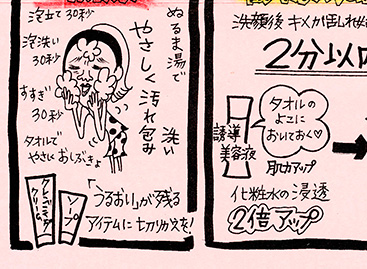 泡立て30秒
泡洗い
30秒
すすぎ
30秒
タオルで
やさしくおしぶきょ
ぬるま湯で
やさしく汚れ包み
洗い
クレンジング
クリーム
ソープ
「うるおい」が残る
アイテムに切りかえを!
洗顔後キメが
2分以内
誘導
美容液
タオルの
よこに
おいておく♡
肌力アップ
化粧水の浸透
2倍アップ